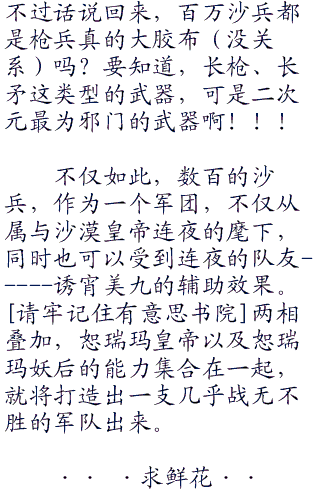 不过话说回来，百万沙兵都
是枪兵真的大胶布（没关
系）吗？要知道，长枪、长
矛这类型的武器，可是二次
元最为邪门的武器啊！！！
不仅如此，数百的沙
兵，作为一个军团，不仅从
属与沙漠皇帝连夜的麾下，
同时也可以受到连夜的队友-
----诱宵美九的辅助效果。
[请牢记住有意思书院]两相
叠加，恕瑞玛皇帝以及恕瑞
玛妖后的能力集合在一起，
就将打造出一支几乎战无不
胜的军队出来。
·· ·求鲜花··